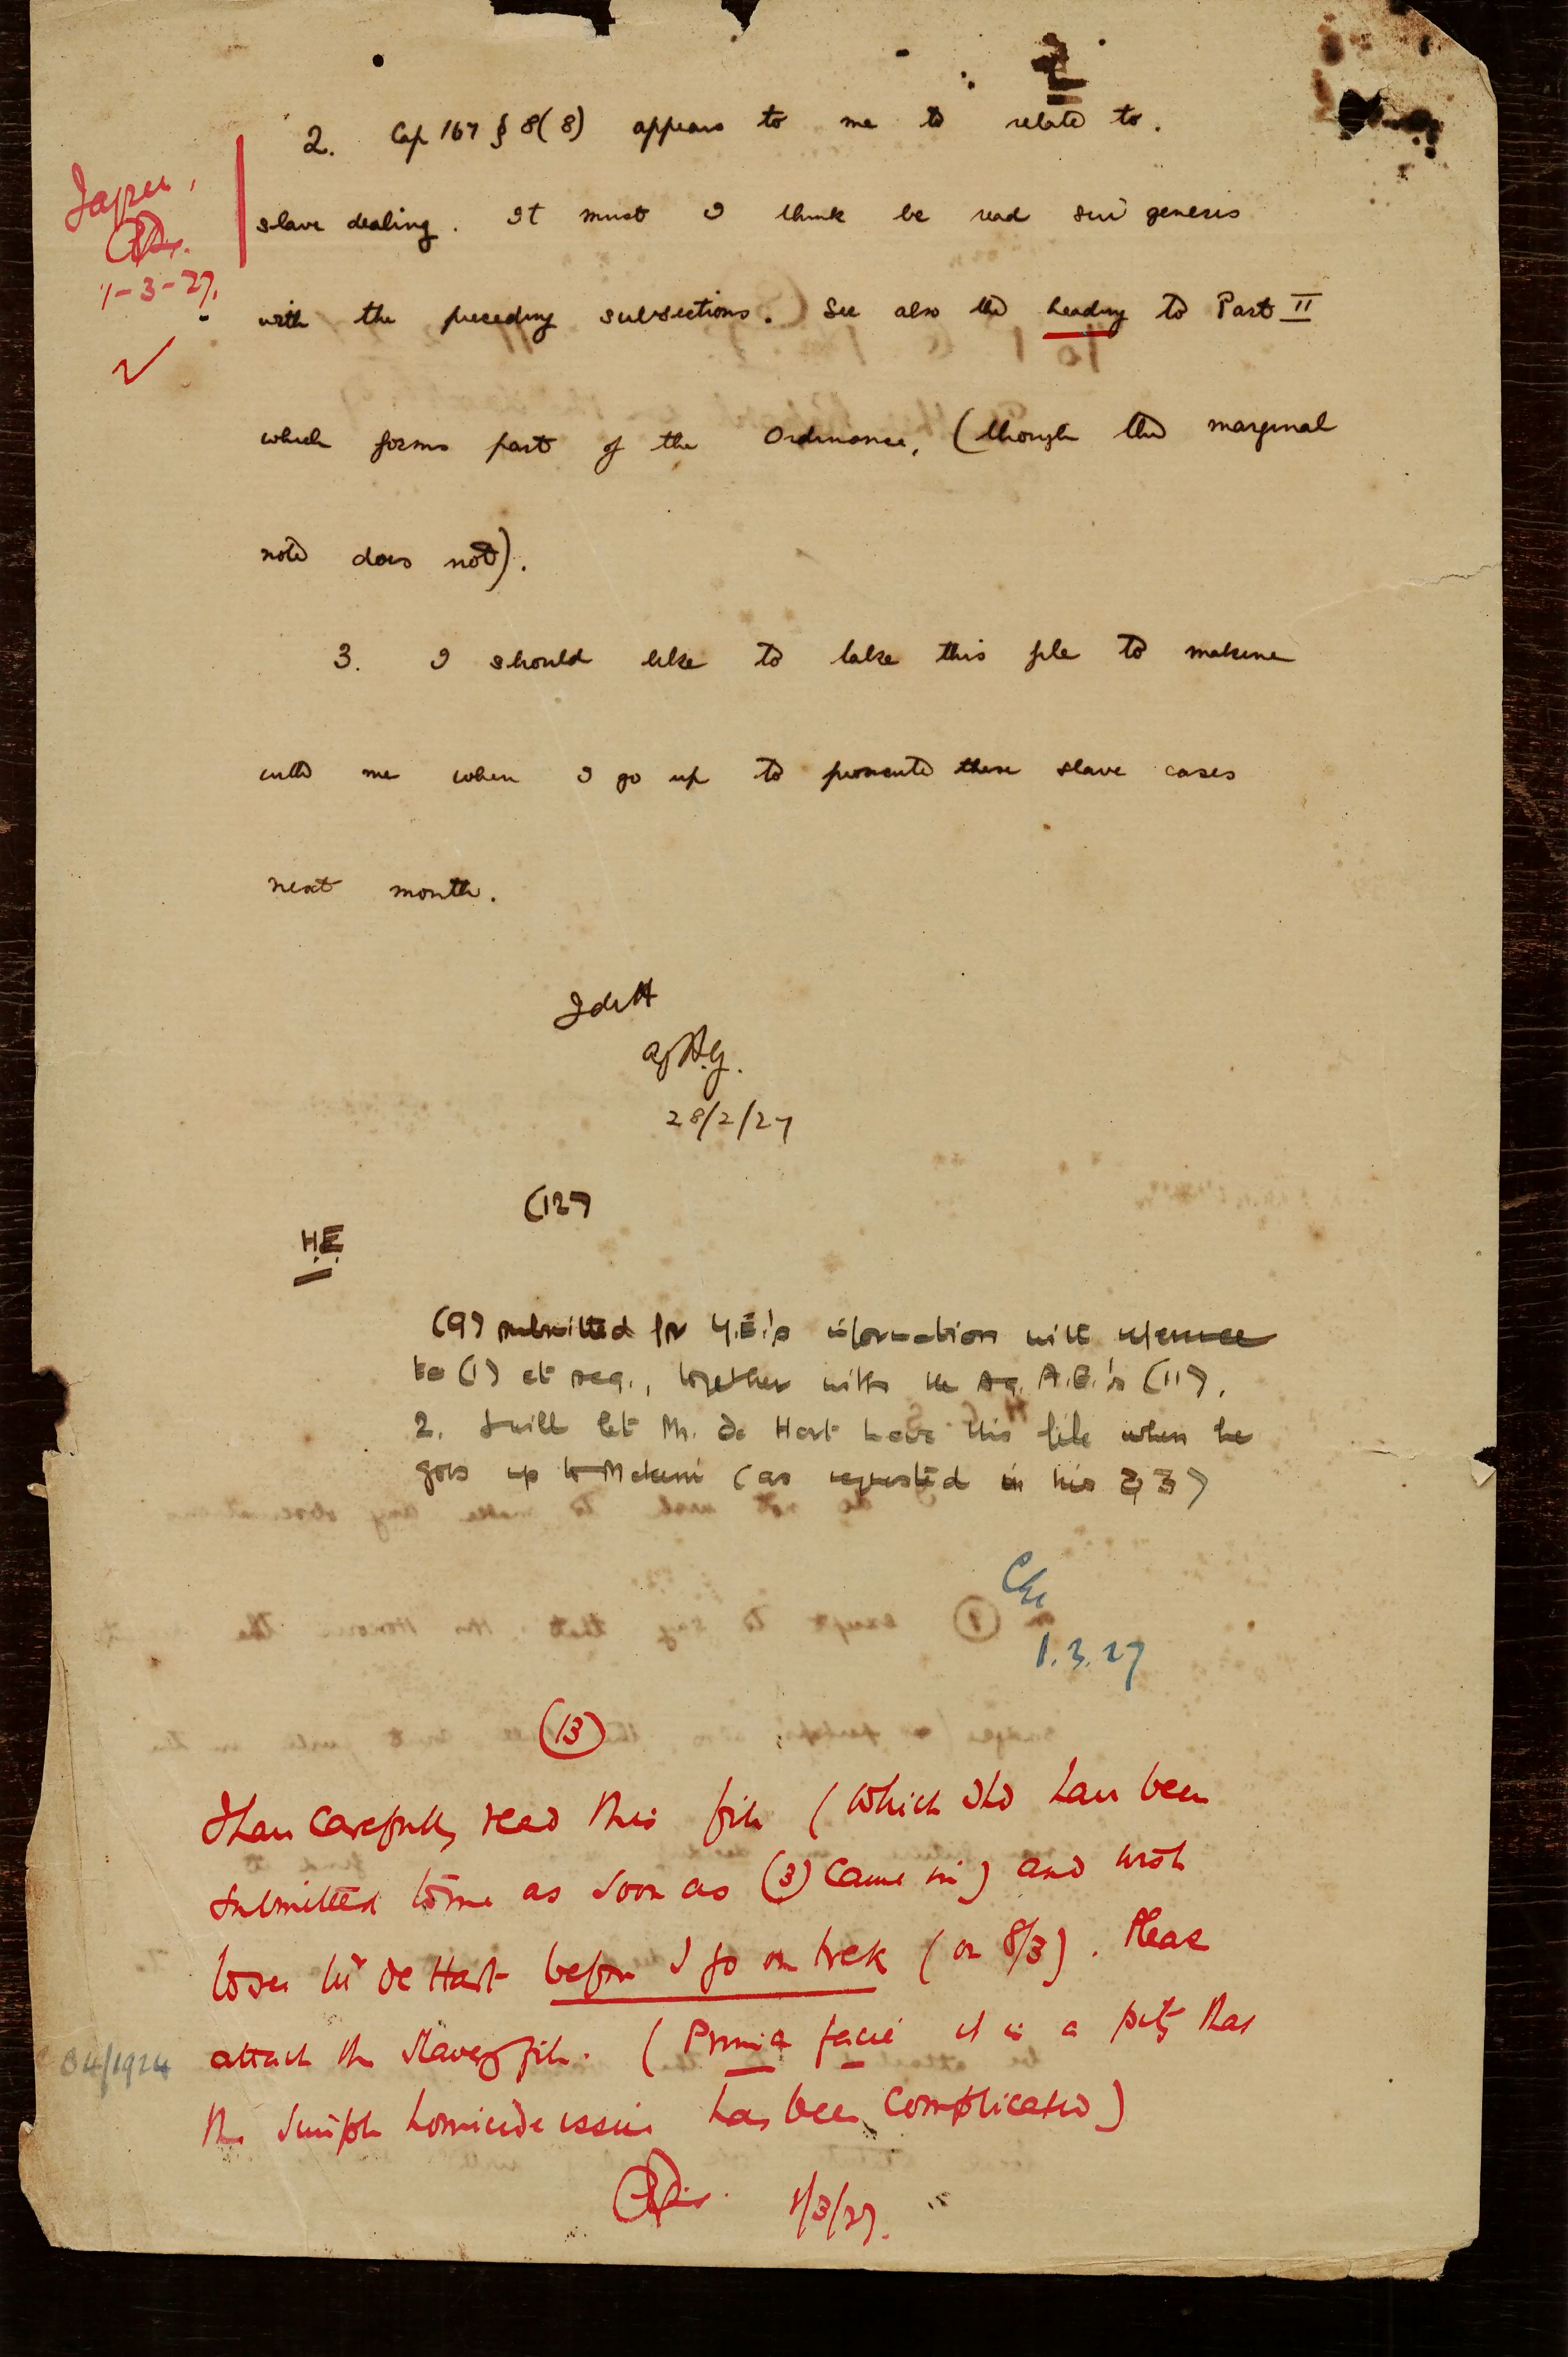 2. Cap 167 § 8(8) appears to me to relate to
slave dealing. It must I think be read sui generis
with the preceding subsections. (See also the heading to Part II
which forms part of the Ordinance, (though the marginal
note does not).
I agree.
1-3-27.
3. I should like to take this file to makene
with me when I go up to prosecute these slave cases
next month.
JdeH
ag A.G.
28/2/27
(12)
H.E.
(9) submitted for Y.E.'s information with reference
to (1) et seq., together with the Ag. A.G.'s (11).
2. I will let Mr. de Hart have this file when he
goes up to Makeni (as requested in his § 3)
1.3.27
(13)
I have carefully read this file (which shd have been
submitted to me as soon as (3) came in) and wish
to see Mr de Hart before I go on trek (on 8/3). Please
attach the Slavery file. (Prima facie it is a pity that
34/1924
the simple homicide issue has been complicated)
1/3/27.